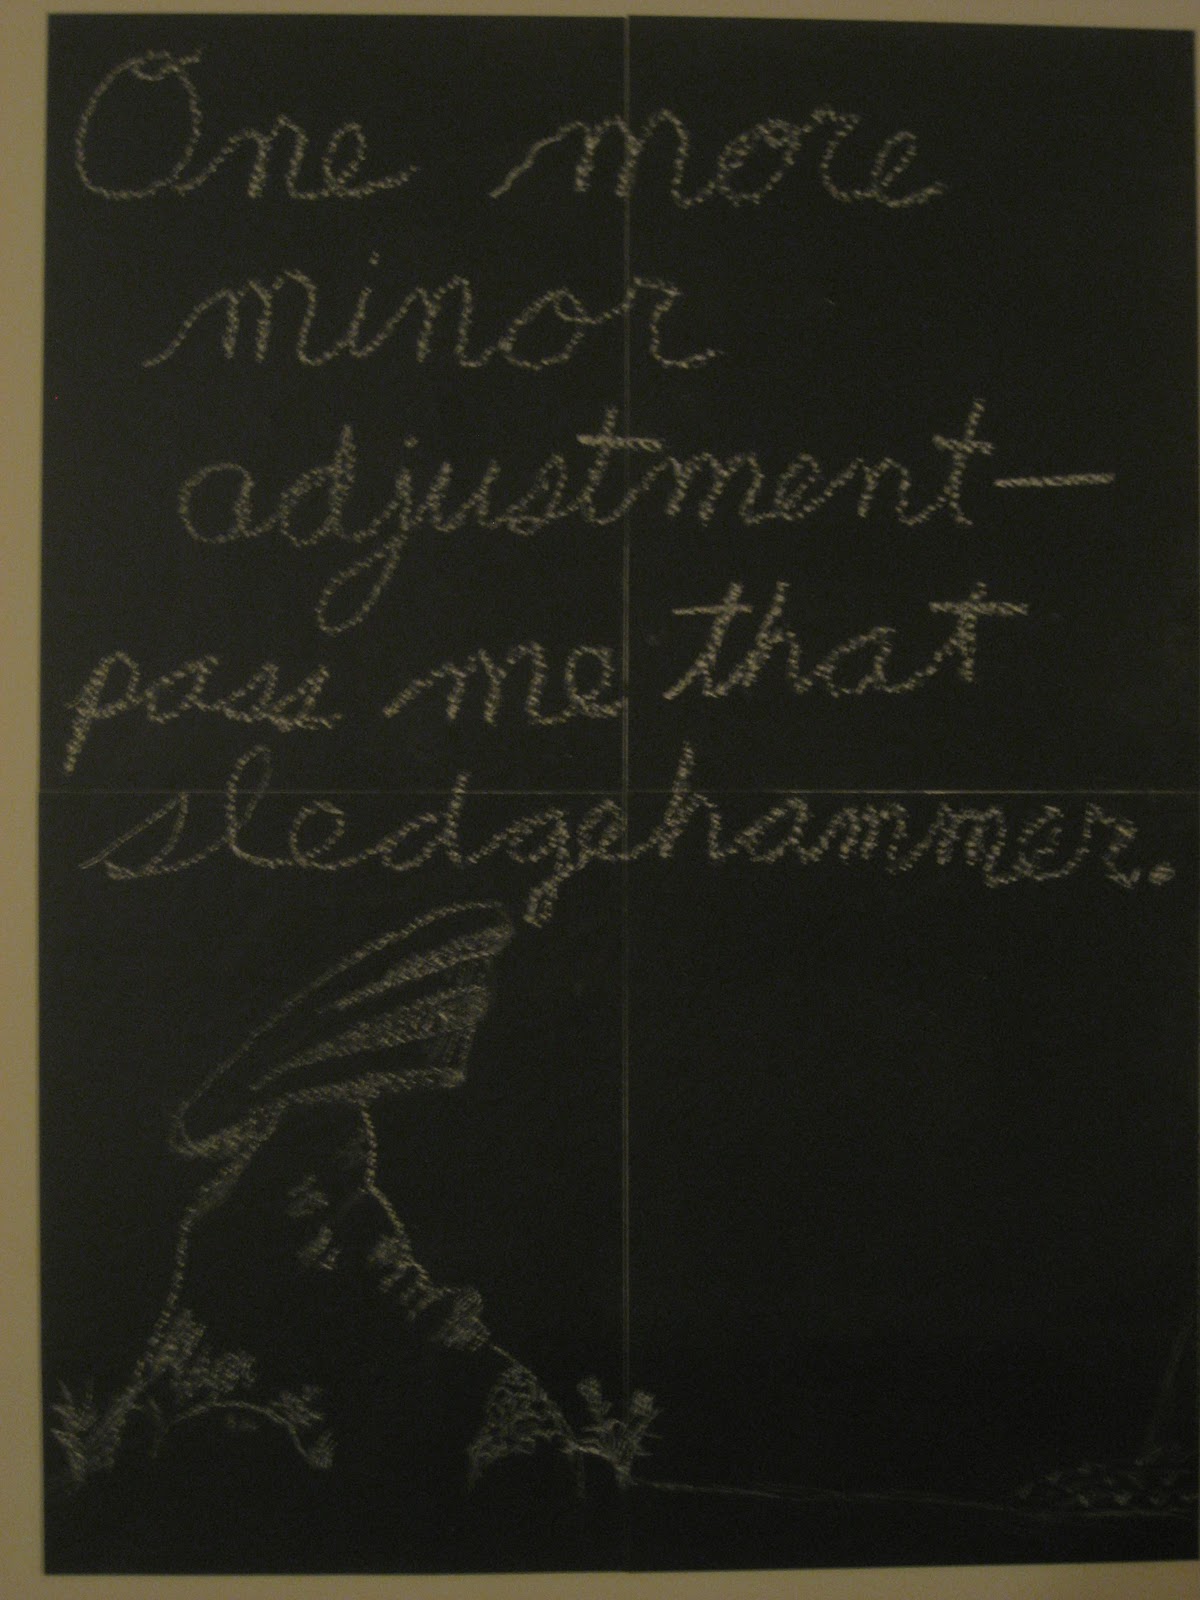 One more
minor
adjustment—
pass me that
sledgehammer.